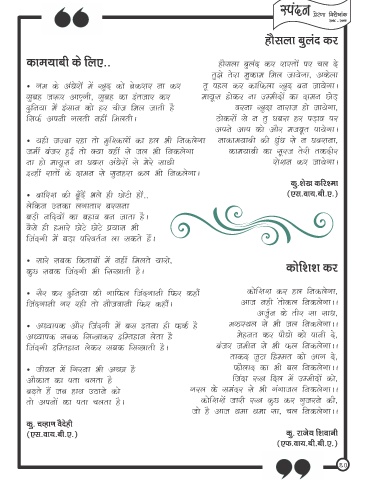 स्पंदन
हौसला बुलंद कर
हौसला बुलंद कर रास्तों पर चल दे
तुझे तेरा मुकाम मिल जायेगा, अकेला
तु पहल कर काफिला खुद बन जायेगा।
मायूस होकर ना उम्मीदों का दामन छोड़
वरना खुदा नाराज हो जायेगा,
ठोकरों से न तु घबरा हर पड़ाव पर
अपने आप को और मजबूत पायेगा।
नाकामयाबी की धुंध से न घबराना,
कामयाबी का सूरज तेरी तकदीर
रोशन कर जायेगा।
कु. शेख करिश्मा
(एस.वाय.बी.ए.)
कामयाबी के लिए..
• गम के अंधेरों में खुद को बेकरार ना कर
सुबह जरूर आएगी, सुबह का इंतजार कर
दुनिया में इंसान को हर चीज मिल जाती है
सिर्फ अपनी गलती नहीं मिलती।
• यही जज्बा रहा तो मुश्किलों का हल भी निकलेगा
जमीं बंजर हुई तो क्या वहीं से जल भी निकलेगा
ना हो मायूस ना घबरा अंधेरों से मेरे साथी
इन्हीं रातों के दामन से सुनहरा कल भी निकलेगा।
• बारिश की बूँदें भले ही छोटी हों..
लेकिन उनका लगातार बरसना
बड़ी नदियों का बहाव बन जाता है।
वैसे ही हमारे छोटे छोटे प्रयास भी
जिंदगी में बड़ा परिवर्तन ला सकते हैं।
• सारे सबक किताबों में नहीं मिलते यारो,
कुछ सबक जिंदगी भी सिखाती है।
• सैर कर दुनिया की गाफिल जिंदगानी फिर कहाँ
जिंदगानी गर रही तो नौजवानी फिर कहाँ।
• अध्यापक और जिंदगी में बस इतना ही फर्क है
अध्यापक सबक सिखाकर इम्तिहान लेता है
जिंदगी इम्तिहान लेकर सबक सिखाती है।
• जीवन में गिरना भी अच्छा है
औकात का पता चलता है
बढ़ते हैं जब हाथ उठाने को
तो अपनों का पता चलता है।
कु. चव्हाण वैदेही
(एस.वाय.बी.ए.)
कोशिश कर
कोशिश कर हल निकलेगा,
आज नहीं तोकल निकलेगा।।
अर्जुन के तीर सा साध,
मरूस्थल से भी जल निकलेगा।।
मेहनत कर पौधों को पानी दे,
बंजर जमीन से भी फल निकलेगा।।
ताकद जुटा हिम्मत को आग दे,
फौलाद का भी बल निकलेगा।।
जिंदा रख दिल में उम्मीदों को,
गरल के समंदर से भी गंगाजल निकलेगा।।
कोशिशें जारी रख कुछ कर गुजरने की,
जो है आज थमा थमा सा, चल निकलेगा।।
कु. राजेय शिवानी
(एफ.वाय.बी.ए.)